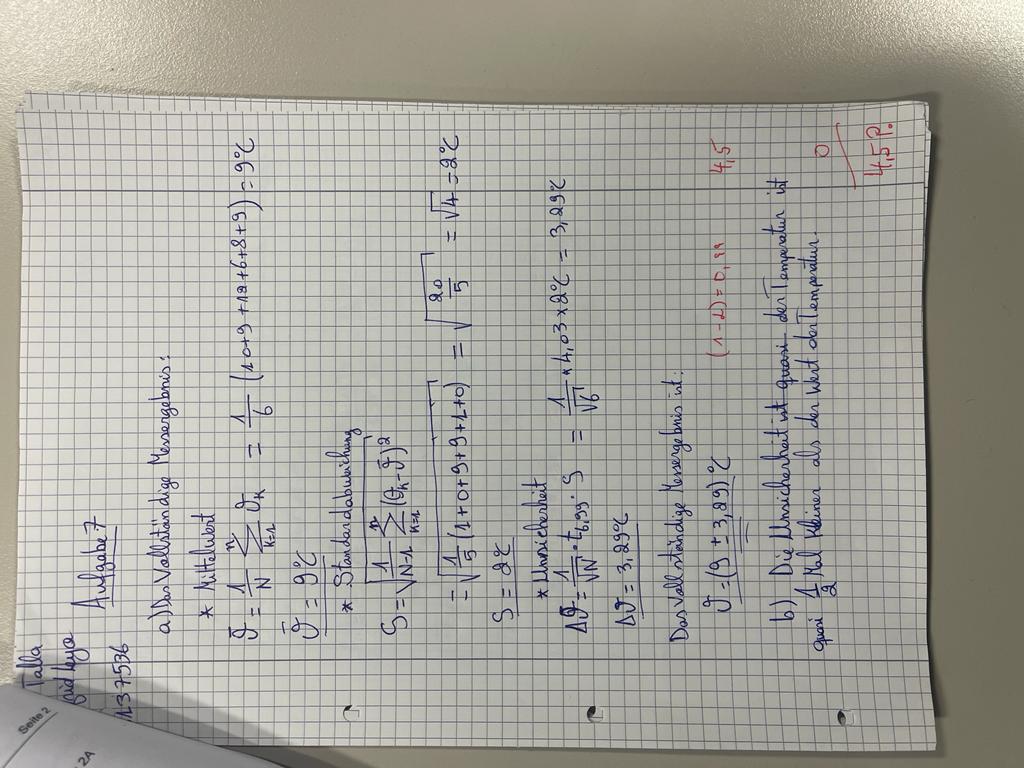 Talla
137536
Aufgabe 7
a) Das Vollständige Messergebnis:
* Mittelwert
ϑ̄ = 1/N Σ_{k=1}^{n} ϑ_k = 1/6 (10+9+12+6+8+9) = 9°C
ϑ̄ = 9°C
* Standardabweichung
S = √(1/(N-1) Σ_{k=1}^{n} (ϑ_k - ϑ̄)²
= √(1/5 (1+0+9+9+1+0) = √(20/5) = √4 = 2°C
S = 2°C
* Unsicherheit
Δϑ = 1/√N · t_{6,99} · S = 1/√6 * 4,03 × 2°C = 3,29°C
Δϑ = 3,29°C
Das Vollständige Messergebnis ist:
ϑ = (9 ± 3,29)°C (1-α) = 0,99 4,5
b) Die Unsicherheit ist quasi der Temperatur ist
quasi 1/2 Mal kleiner als der Wert der Temperatur.
0
4,5 P.
Seite 2
2A